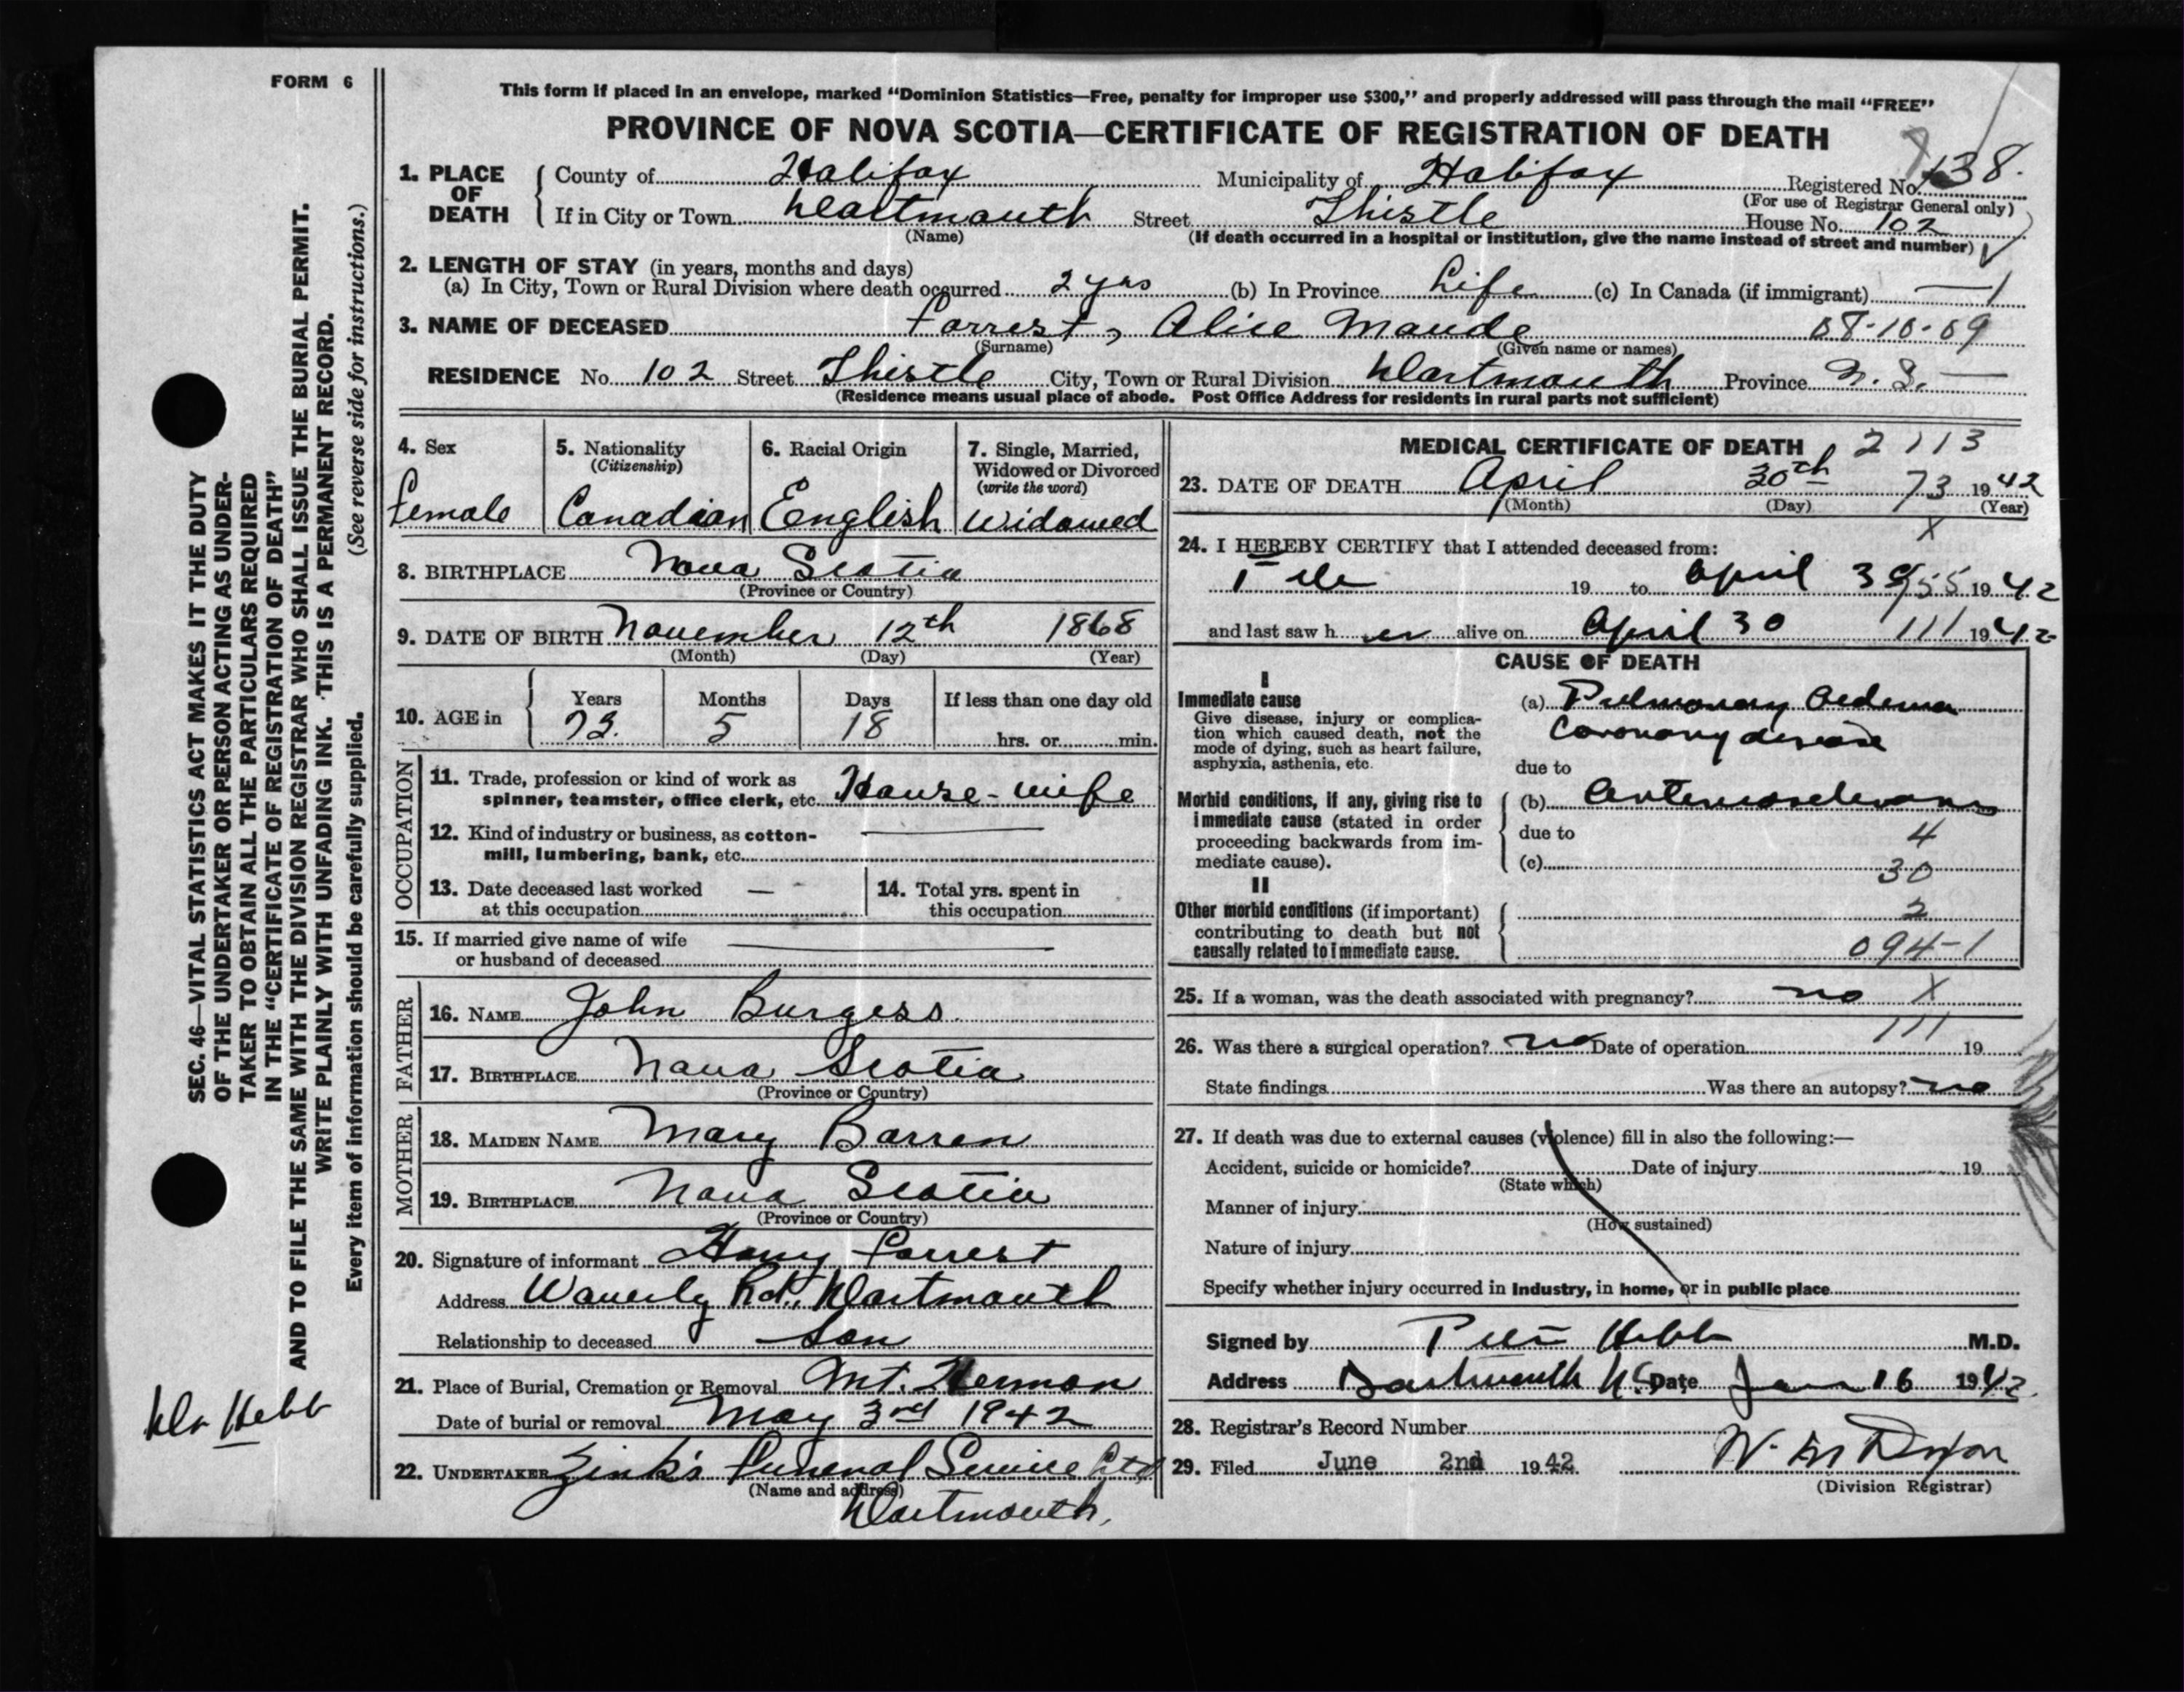 FORM 6
This form if placed in an envelope, marked "Dominion Statistics—Free, penalty for improper use $300," and properly addressed will pass through the mail "FREE"
PROVINCE OF NOVA SCOTIA—CERTIFICATE OF REGISTRATION OF DEATH
1. PLACE OF DEATH County of Halifax Municipality of Halifax Registered No. 138.
(For use of Registrar General only)
If in City or Town Dartmouth Street Thistle House No. 102
(Name) (If death occurred in a hospital or institution, give the name instead of street and number)
2. LENGTH OF STAY (in years, months and days)
(a) In City, Town or Rural Division where death occurred 2 yrs (b) In Province Life (c) In Canada (if immigrant) — 1
3. NAME OF DECEASED Forrest, Alice Maude 08-10-09
(Surname) (Given name or names)
RESIDENCE No. 102 Street Thistle City, Town or Rural Division Dartmouth Province N. S. —
(Residence means usual place of abode. Post Office Address for residents in rural parts not sufficient)
4. Sex
Female
5. Nationality
(Citizenship)
Canadian
6. Racial Origin
English
7. Single, Married,
Widowed or Divorced
(write the word)
Widowed
8. BIRTHPLACE Nova Scotia
(Province or Country)
9. DATE OF BIRTH November 12th 1868
(Month) (Day) (Year)
10. AGE in Years Months Days If less than one day old
73. 5 18 hrs. or min.
OCCUPATION
11. Trade, profession or kind of work as
spinner, teamster, office clerk, etc. House-wife
12. Kind of industry or business, as cotton-
mill, lumbering, bank, etc.
13. Date deceased last worked
at this occupation
14. Total yrs. spent in
this occupation
15. If married give name of wife
or husband of deceased
FATHER
16. NAME John Burgess.
17. BIRTHPLACE Nova Scotia
(Province or Country)
MOTHER
18. MAIDEN NAME Mary Barren
19. BIRTHPLACE Nova Scotia
(Province or Country)
20. Signature of informant Harry Forrest
Address Waverly Rd., Dartmouth
Relationship to deceased Son
21. Place of Burial, Cremation or Removal Mt. Hermon
Date of burial or removal May 3rd 1942
22. UNDERTAKER Zink's Funeral Service Ltd
(Name and address)
Dartmouth,
MEDICAL CERTIFICATE OF DEATH 2113
23. DATE OF DEATH April 30th 73 1942
(Month) (Day) (Year)
X
24. I HEREBY CERTIFY that I attended deceased from:
19 to April 30 55 1942
and last saw her alive on April 30 111 1942
CAUSE OF DEATH
I
Immediate cause
Give disease, injury or complica-
tion which caused death, not the
mode of dying, such as heart failure,
asphyxia, asthenia, etc.
(a) Pulmonary Oedema
Coronary disease
due to
Morbid conditions, if any, giving rise to
immediate cause (stated in order
proceeding backwards from im-
mediate cause).
(b) Arteriosclerosis
due to 4
(c) 30
II
Other morbid conditions (if important)
contributing to death but not
causally related to immediate cause.
2
094-1
25. If a woman, was the death associated with pregnancy? no X
111
26. Was there a surgical operation? no Date of operation 19
State findings Was there an autopsy? no
27. If death was due to external causes (violence) fill in also the following:—
Accident, suicide or homicide? Date of injury 19
(State which)
Manner of injury
(How sustained)
Nature of injury
Specify whether injury occurred in industry, in home, or in public place
Signed by Hebb M.D.
Address Dartmouth N.S. Date 16 1942.
28. Registrar's Record Number
29. Filed June 2nd 1942
(Division Registrar)
SEC. 46—VITAL STATISTICS ACT MAKES IT THE DUTY
OF THE UNDERTAKER OR PERSON ACTING AS UNDER-
TAKER TO OBTAIN ALL THE PARTICULARS REQUIRED
IN THE "CERTIFICATE OF REGISTRATION OF DEATH"
AND TO FILE THE SAME WITH THE DIVISION REGISTRAR WHO SHALL ISSUE THE BURIAL PERMIT.
WRITE PLAINLY WITH UNFADING INK. THIS IS A PERMANENT RECORD.
Every item of information should be carefully supplied. (See reverse side for instructions.)
Dr Hebb